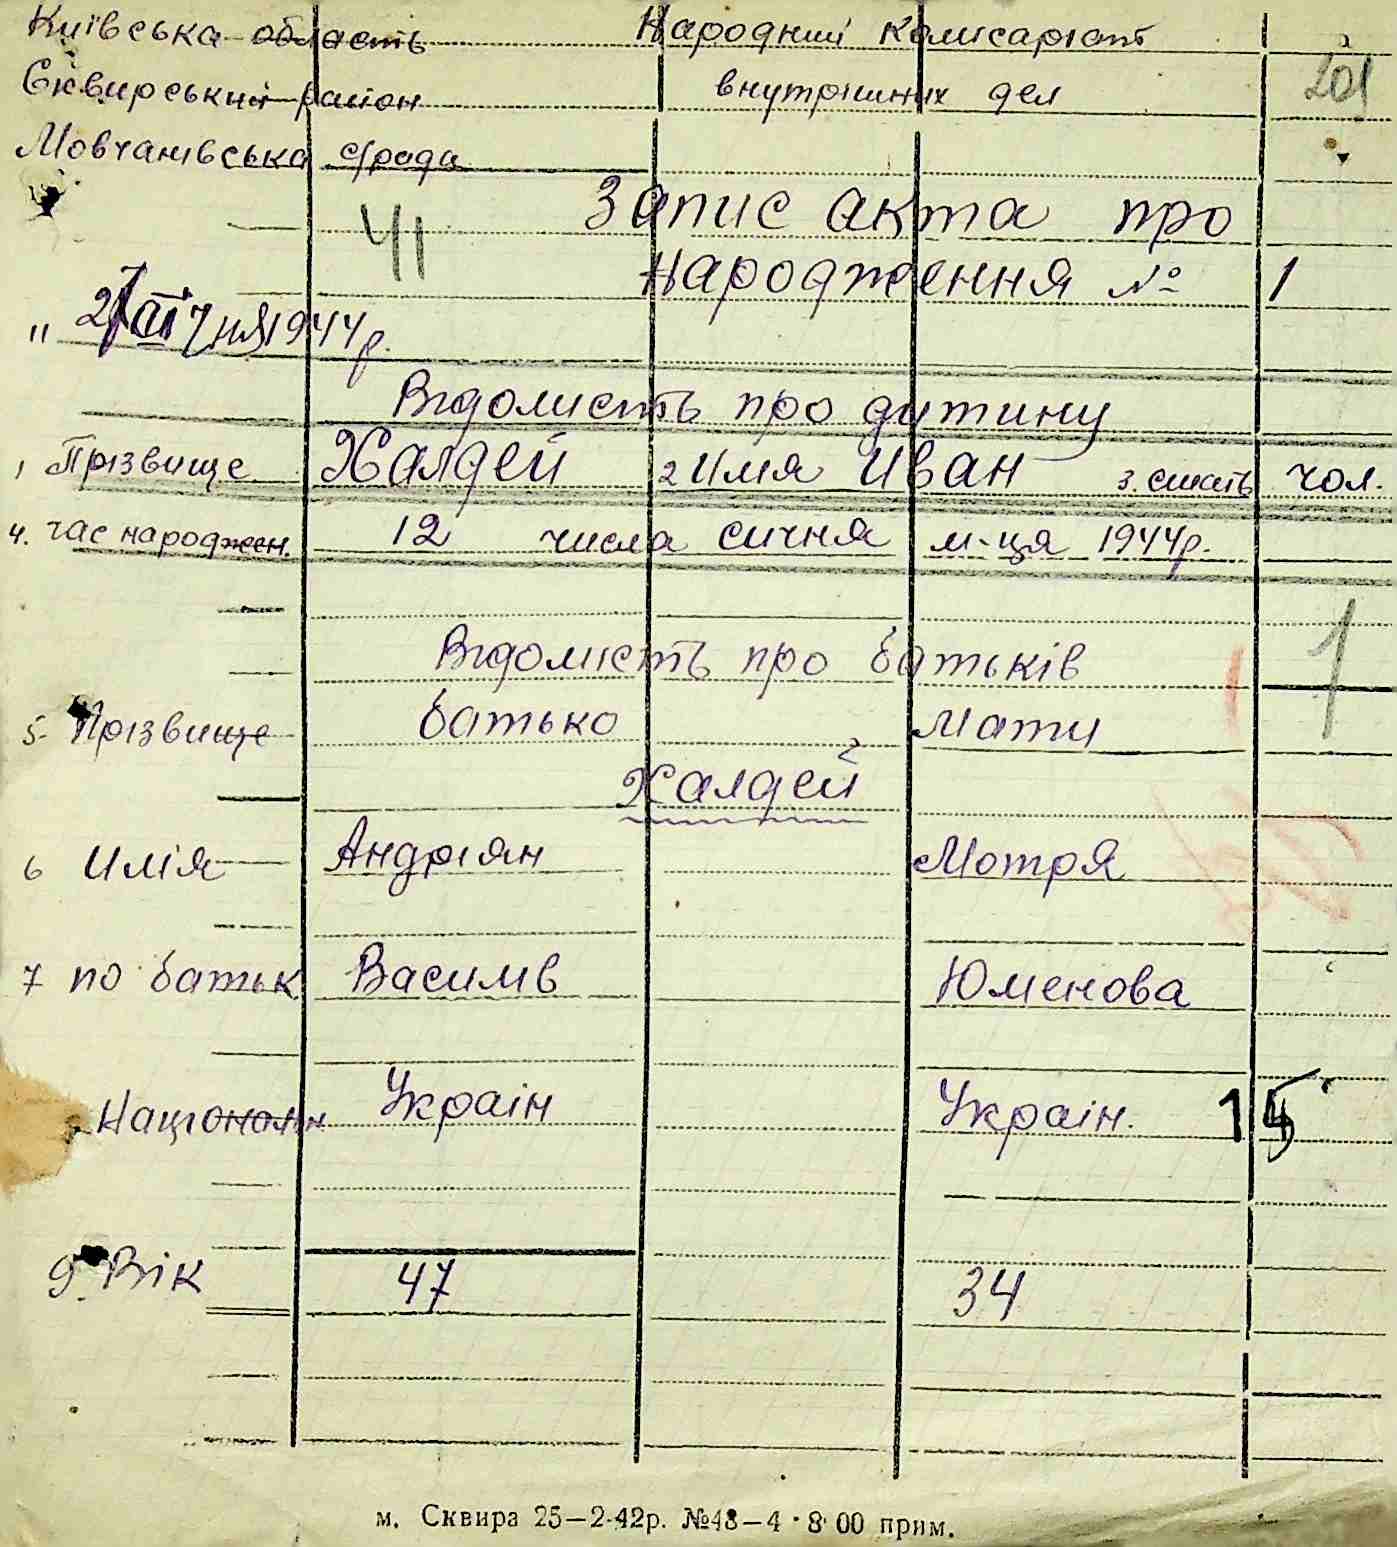 Київська область Народний Комисаріат
Сквирський район внутрішних дел 201
Мовчанівська с/рада
41 Запис акта про
народження № 1
" 21 січня 1944 р.
Відомисть про дитину
1 Прізвище Халдей 2 Имя Иван 3. стать чол.
4. час народжен. 12 числа сичня м-ця 1944р.
Відомисть про батьків 1
5. Прізвище батько Мати
Халдей
6 Имія Андріян Мотря
7 по батьк Василів Юменова
Націоналн Украін Украін. 15
9. Вік 47 34
м. Сквира 25—2-42р. №48—4·8·00 прим.